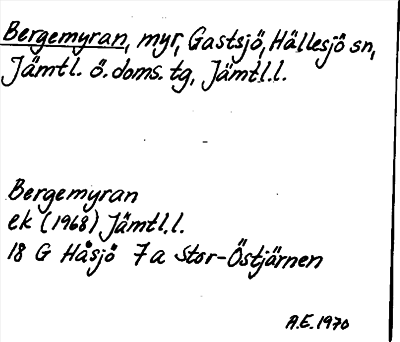 Bergemyran, myr, Gastsjö, Hällesjö sn,
Jämtl. ö. doms. tg, Jämtl.l.
Bergemyran
ek (1968) Jämtl.l.
18 G Håsjö 7a Stor-Östjärnen
A.E. 1970